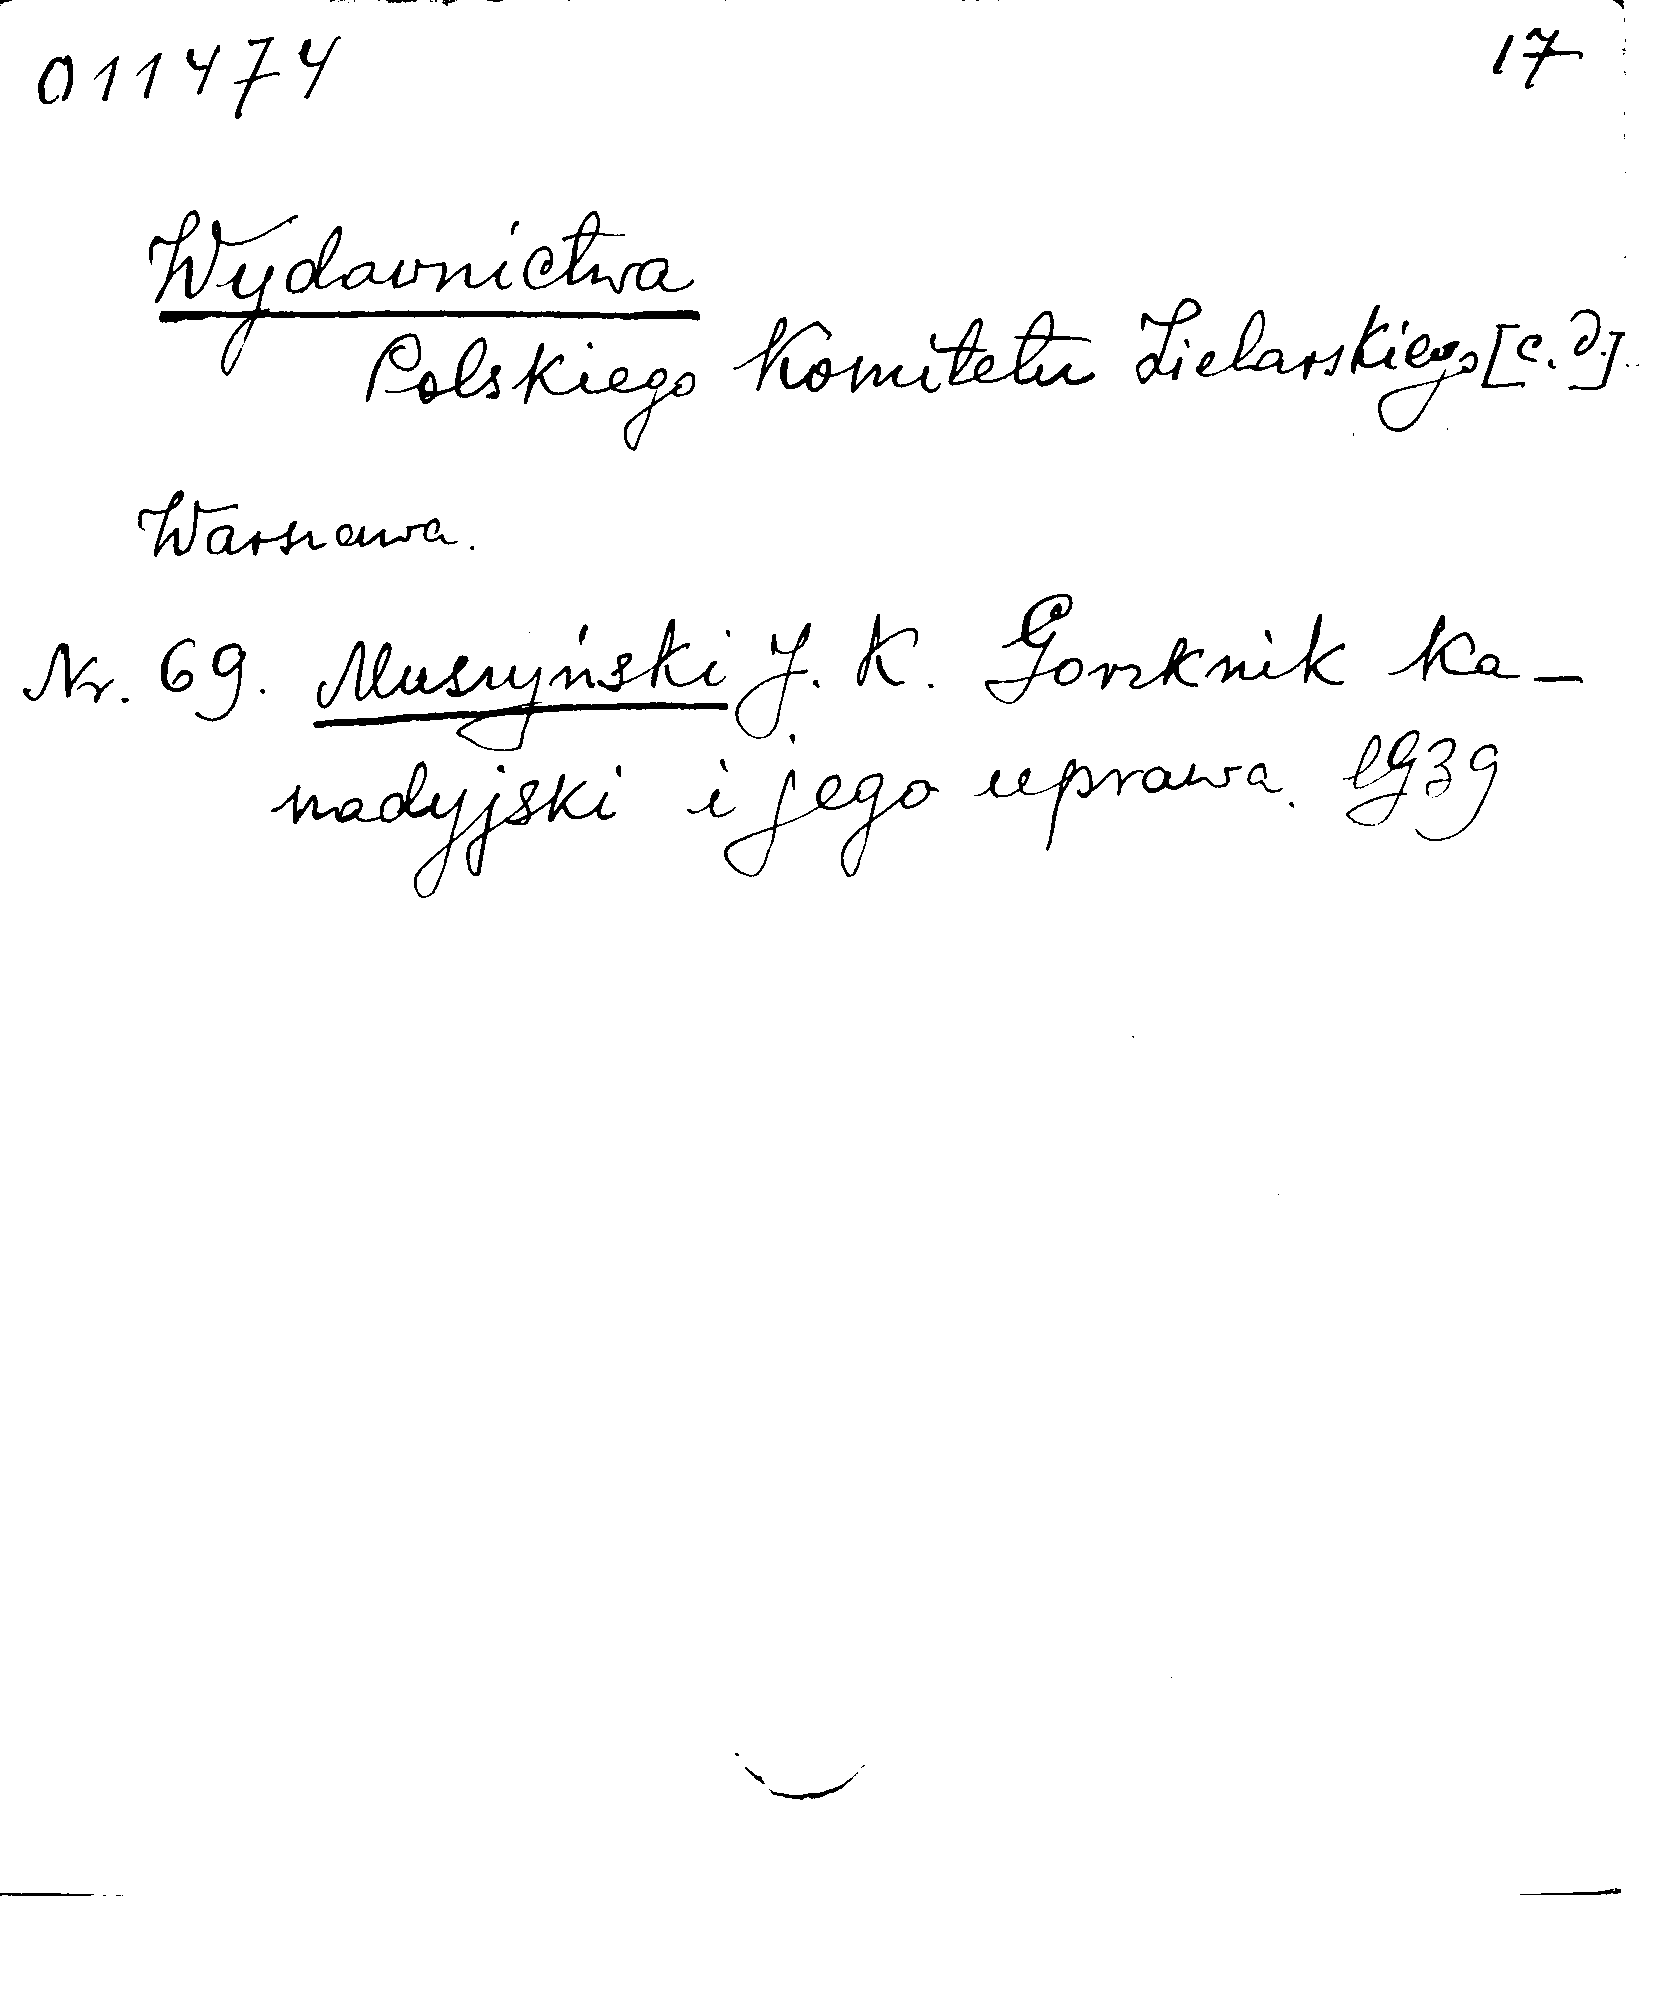 011474 17
Wydawnictwa
Polskiego Komitetu Zielarskiego [c.d.]
Warszawa.
Nr. 69. Muszyński J. K. Gorzknik ka-
nadyjski i jego uprawa. 1939